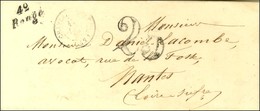 42
Rougé
Monsieur
Monsieur Daniel Lacombe,
avocat, rue de la Fosse,
Nantes
(Loire-Infre)